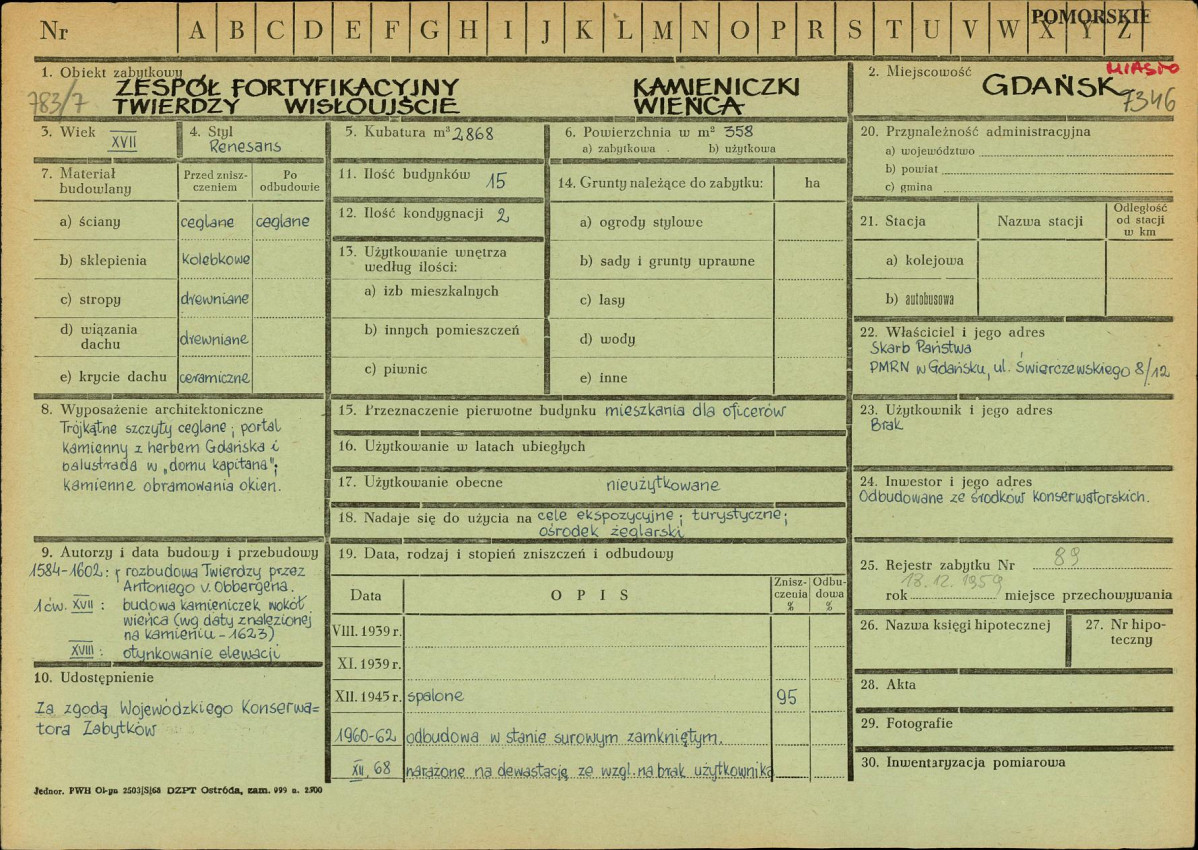 Nr A B C D E F G H I J K L M N O P R S T U V W X Y Z
POMORSKIE
1. Obiekt zabytkowy
783/7
ZESPÓŁ FORTYFIKACYJNY KAMIENICZKI
TWIERDZY WISŁOUJŚCIE WIEŃCA
2. Miejscowość
MIASTO
GDAŃSK
7346
3. Wiek XVII
4. Styl
Renesans
5. Kubatura m³ 2868
6. Powierzchnia w m² 358
a) zabytkowa b) użytkowa
7. Materiał budowlany
Przed zniszczeniem
Po odbudowie
a) ściany ceglane ceglane
b) sklepienia kolebkowe
c) stropy drewniane
d) wiązania dachu drewniane
e) krycie dachu ceramiczne
11. Ilość budynków 15
12. Ilość kondygnacji 2
13. Użytkowanie wnętrza
według ilości:
a) izb mieszkalnych
b) innych pomieszczeń
c) piwnic
14. Grunty należące do zabytku: ha
a) ogrody stylowe
b) sady i grunty uprawne
c) lasy
d) wody
e) inne
8. Wyposażenie architektoniczne
Trójkątne szczyty ceglane; portal
kamienny z herbem Gdańska i
balustrada w „domu kapitana";
kamienne obramowania okien.
9. Autorzy i data budowy i przebudowy
1584-1602: rozbudowa Twierdzy przez
Antoniego v. Obbergena.
1 ćw. XVII : budowa kamieniczek wokół
wieńca (wg daty znalezionej
na kamieniu - 1623)
XVIII : otynkowanie elewacji
10. Udostępnienie
Za zgodą Wojewódzkiego Konserwa=
tora Zabytków
15. Przeznaczenie pierwotne budynku mieszkania dla oficerów
16. Użytkowanie w latach ubiegłych
17. Użytkowanie obecne nieużytkowane
18. Nadaje się do użycia na cele ekspozycyjne; turystyczne;
ośrodek żeglarski
19. Data, rodzaj i stopień zniszczeń i odbudowy
Data OPIS Zniszczenia % Odbudowa %
VIII. 1939 r.
XI. 1939 r.
XII. 1945 r. spalone 95
1960-62 odbudowa w stanie surowym zamkniętym.
XII. 68 narażone na dewastację ze wzgl. na brak użytkownika
20. Przynależność administracyjna
a) województwo
b) powiat
c) gmina
21. Stacja Nazwa stacji Odległość od stacji w km
a) kolejowa
b) autobusowa
22. Właściciel i jego adres
Skarb Państwa
PMRN w Gdańsku, ul. Świerczewskiego 8/12
23. Użytkownik i jego adres
Brak
24. Inwestor i jego adres
Odbudowane ze środków konserwatorskich.
25. Rejestr zabytku Nr 89
rok 18.12.1959 miejsce przechowywania
26. Nazwa księgi hipotecznej
27. Nr hipo-
teczny
28. Akta
29. Fotografie
30. Inwentaryzacja pomiarowa
Jednor. PWH Ol-yn 2503/S/68 DZPT Ostróda, zam. 999 n. 2500